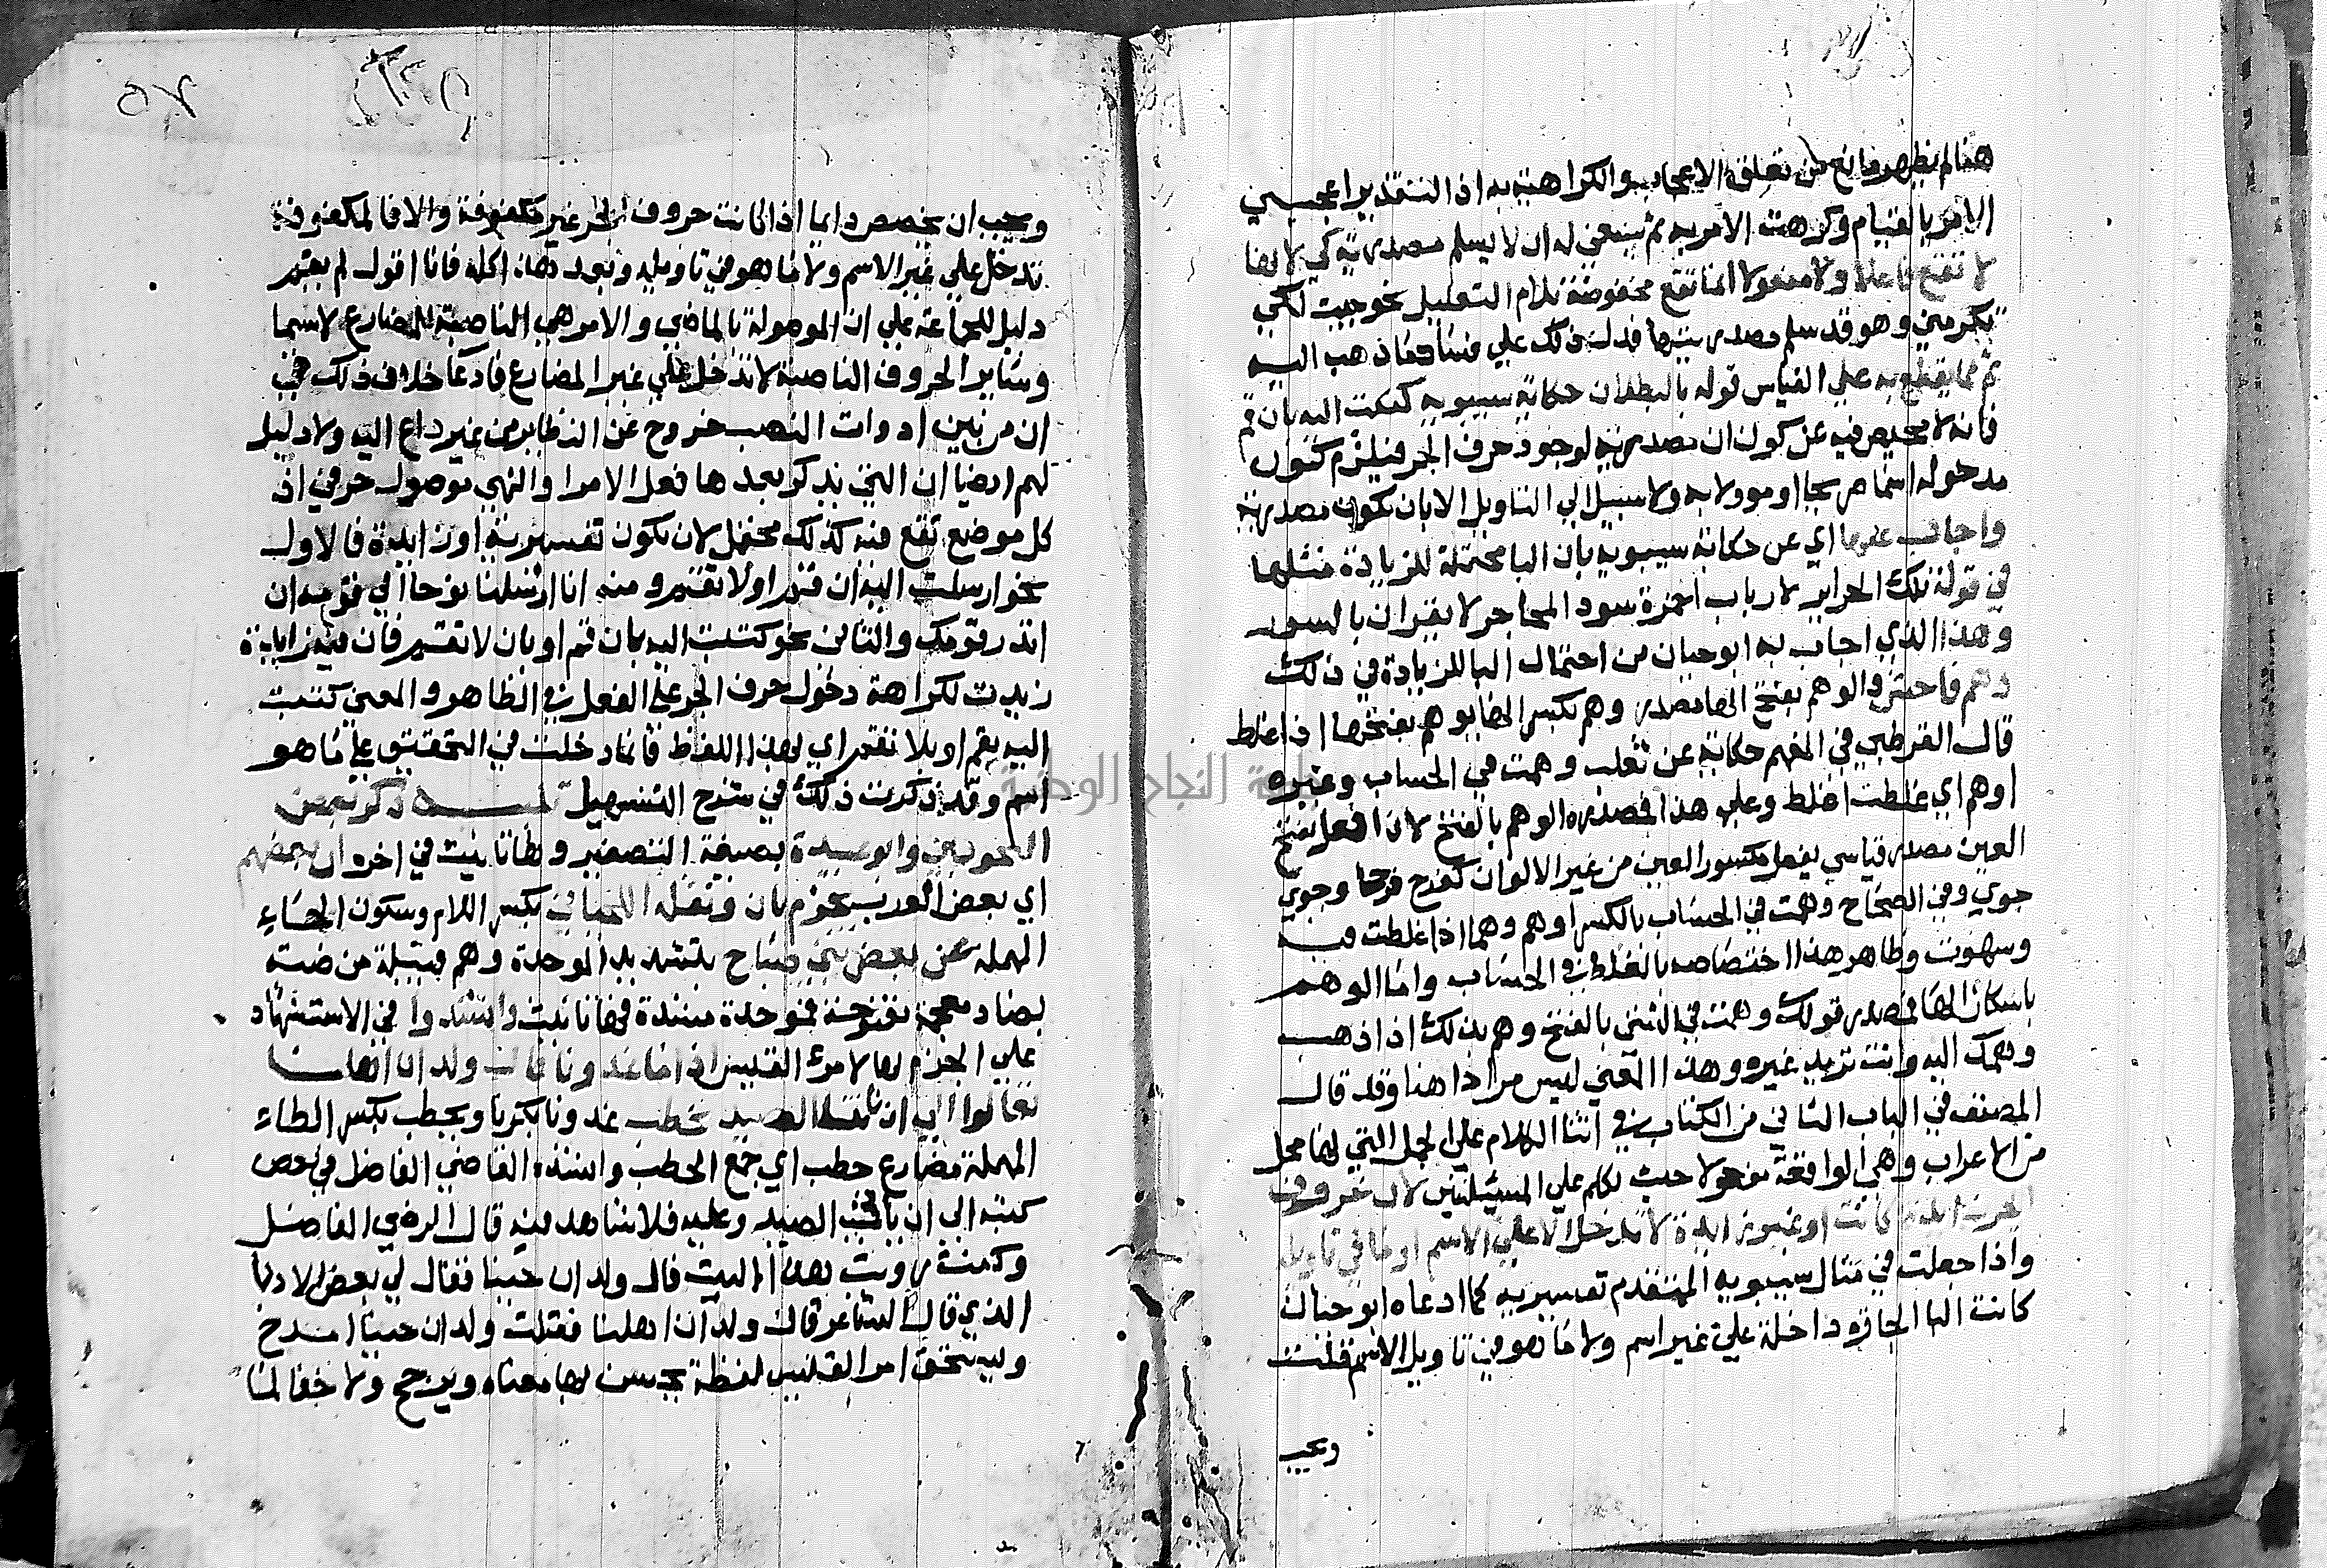 هنا لم يظهر مانع من تعلق الاعجاب والكراهية به اذ التقدير اعجبني
الامر بالقيام وكرهت الامر به ثم ينبغي له ان لا يسلم مصدرية كي لانها
لا تقع فاعلا ولا مفعولا انما تقع مخفوضة بلام التعليل نحو جيت لكي
تكرمني وهو قد سلم مصدريتها فدل ذلك علي فساد ما ذهب اليه
ثم مما يقطع به علي القياس قوله بالبطلان حكاية سيبويه كتبت اليه بان قم
فانه لا محيص فيه عن كون ان مصدرية لوجود حرف الجر فيلزم كون
مدخوله اسما صريحا او موولا به ولا سبيل الي التاويل الا بان تكون مصدرية
واجاب عنها اي عن حكاية سيبويه بان البا محتملة للزيادة مثلها
في قوله تلك الحراير لا ربات احمزة سود المحاجر لا يقران بالسور
وهذا الذي اجاب به ابو حيان من احتمال البا للزيادة في ذلك
وهم فاحش والوهم بفتح الها مصدر وهم بكسر الها يوهم بفتحها اذا غلط
قال القرطبي في المفهم حكاية عن ثعلب وهمت في الحساب وغيره
اوهم اي غلطت اغلط وعلي هذا فمصدره الوهم بالفتح لان الفعل بفتح
العين مصدر قياسي لفعل مكسور العين من غير الالوان كفرح فرحا وجوي
جوي وفي الصحاح وهمت في الحساب بالكسر اوهم وهما اذا غلطت فيه
وسهوت وظاهر هذا اختصاصه بالغلط في الحساب واما الوهم
باسكان الها فمصدر قولك وهمت في الشي بالفتح وهم بذلك اذا ذهب
وهمك اليه وانت تريد غيره وهذا المعني ليس مرادا هنا وقد قال
المصنف في الباب الثاني من الكتاب في اثنا الكلام علي الجمل التي لها محل
من الاعراب وهي الواقعة مفعولا حيث تكلم علي المسيلتين لان حروف
الجر زايدة كانت او غير زايدة لا تدخل الا علي الاسم او ما في تاويله
واذا جعلت في مثال سيبويه المتقدم تفسيرية كما ادعاه ابو حيان
كانت البا الجارة داخلة علي غير اسم ولا ما هو في تاويل الاسم قلت
ويجب
٥٧
ويجب ان يخصص دايما اذا كانت حروف الجر غير مكفوفة والا فالمكفوفة
تدخل علي غير الاسم ولا ما هو في تاويله وبعد هذا كله فانا اقول لم يقم
دليل للجماعة علي ان الموصولة بالماضي والامر هي الناصبة للمضارع لا سيما
وساير الحروف الناصبة لا تدخل علي غير المضارع فادعا خلاف ذلك في
ان من بين ادوات النصب خروج عن النظاير من غير داع اليه ولا دليل
لهم ايضا ان التي يذكر بعدها فعل الامر او النهي موصول حرفي اذ
كل موضع تقع فيه كذلك محتمل لان تكون تفسيرية او زايدة فالاول
نحو ارسلت اليه ان قم او لا تقم ومنه انا ارسلنا نوحا الي قومه ان
انذر قومك والثاني نحو كتبت اليه بان قم او بان لا تقم فان فيه زايدة
زيدت لكراهة دخول حرف الجر علي الفعل في الظاهر والمعني كتبت
اليه بقم او بلا تقم اي بهذا اللفظ فانما دخلت في التحقيق علي ما هو
اسم وقد ذكرت ذلك في شرح التسهيل ذكر بعض
الكوفيين وابو عبيدة بصيغة التصغير وهاء تانيث في اخره ان بعضهم
اي بعض العرب يجزم بان ونقله اللحياني بكسر اللام وسكون الحاء
المهملة عن بعض بني صباح بتشديد الموحدة وهم قبيلة من ضبة
بضاد معجمة مفتوحة فموحدة مشددة فهاء تانيث وانشدوا في الاستشهاد
علي الجزم بها لامرئ القيس اذا ما غدونا قال ولدان اهلنا
تعالوا الي ان ياتنا الصيد نحطب غدونا بكرنا ويحطب بكسر الطاء
المهملة مضارع حطب اي جمع الحطب وانشده القاضي الفاضل في بعض
كتبه الي ان ياتي الصيد وعليه فلا شاهد فيه قال الرضي الفاضل
وكنت رويت هذا البيت قال ولدان حينا فقال لي بعض الادبا
الذي قال الشاعر قال ولدان اهلنا فقلت ولدان حينا امدح
وليستحق امرا القيس لفظة يحسن بها معناه ويرجح ولا خفا لنا